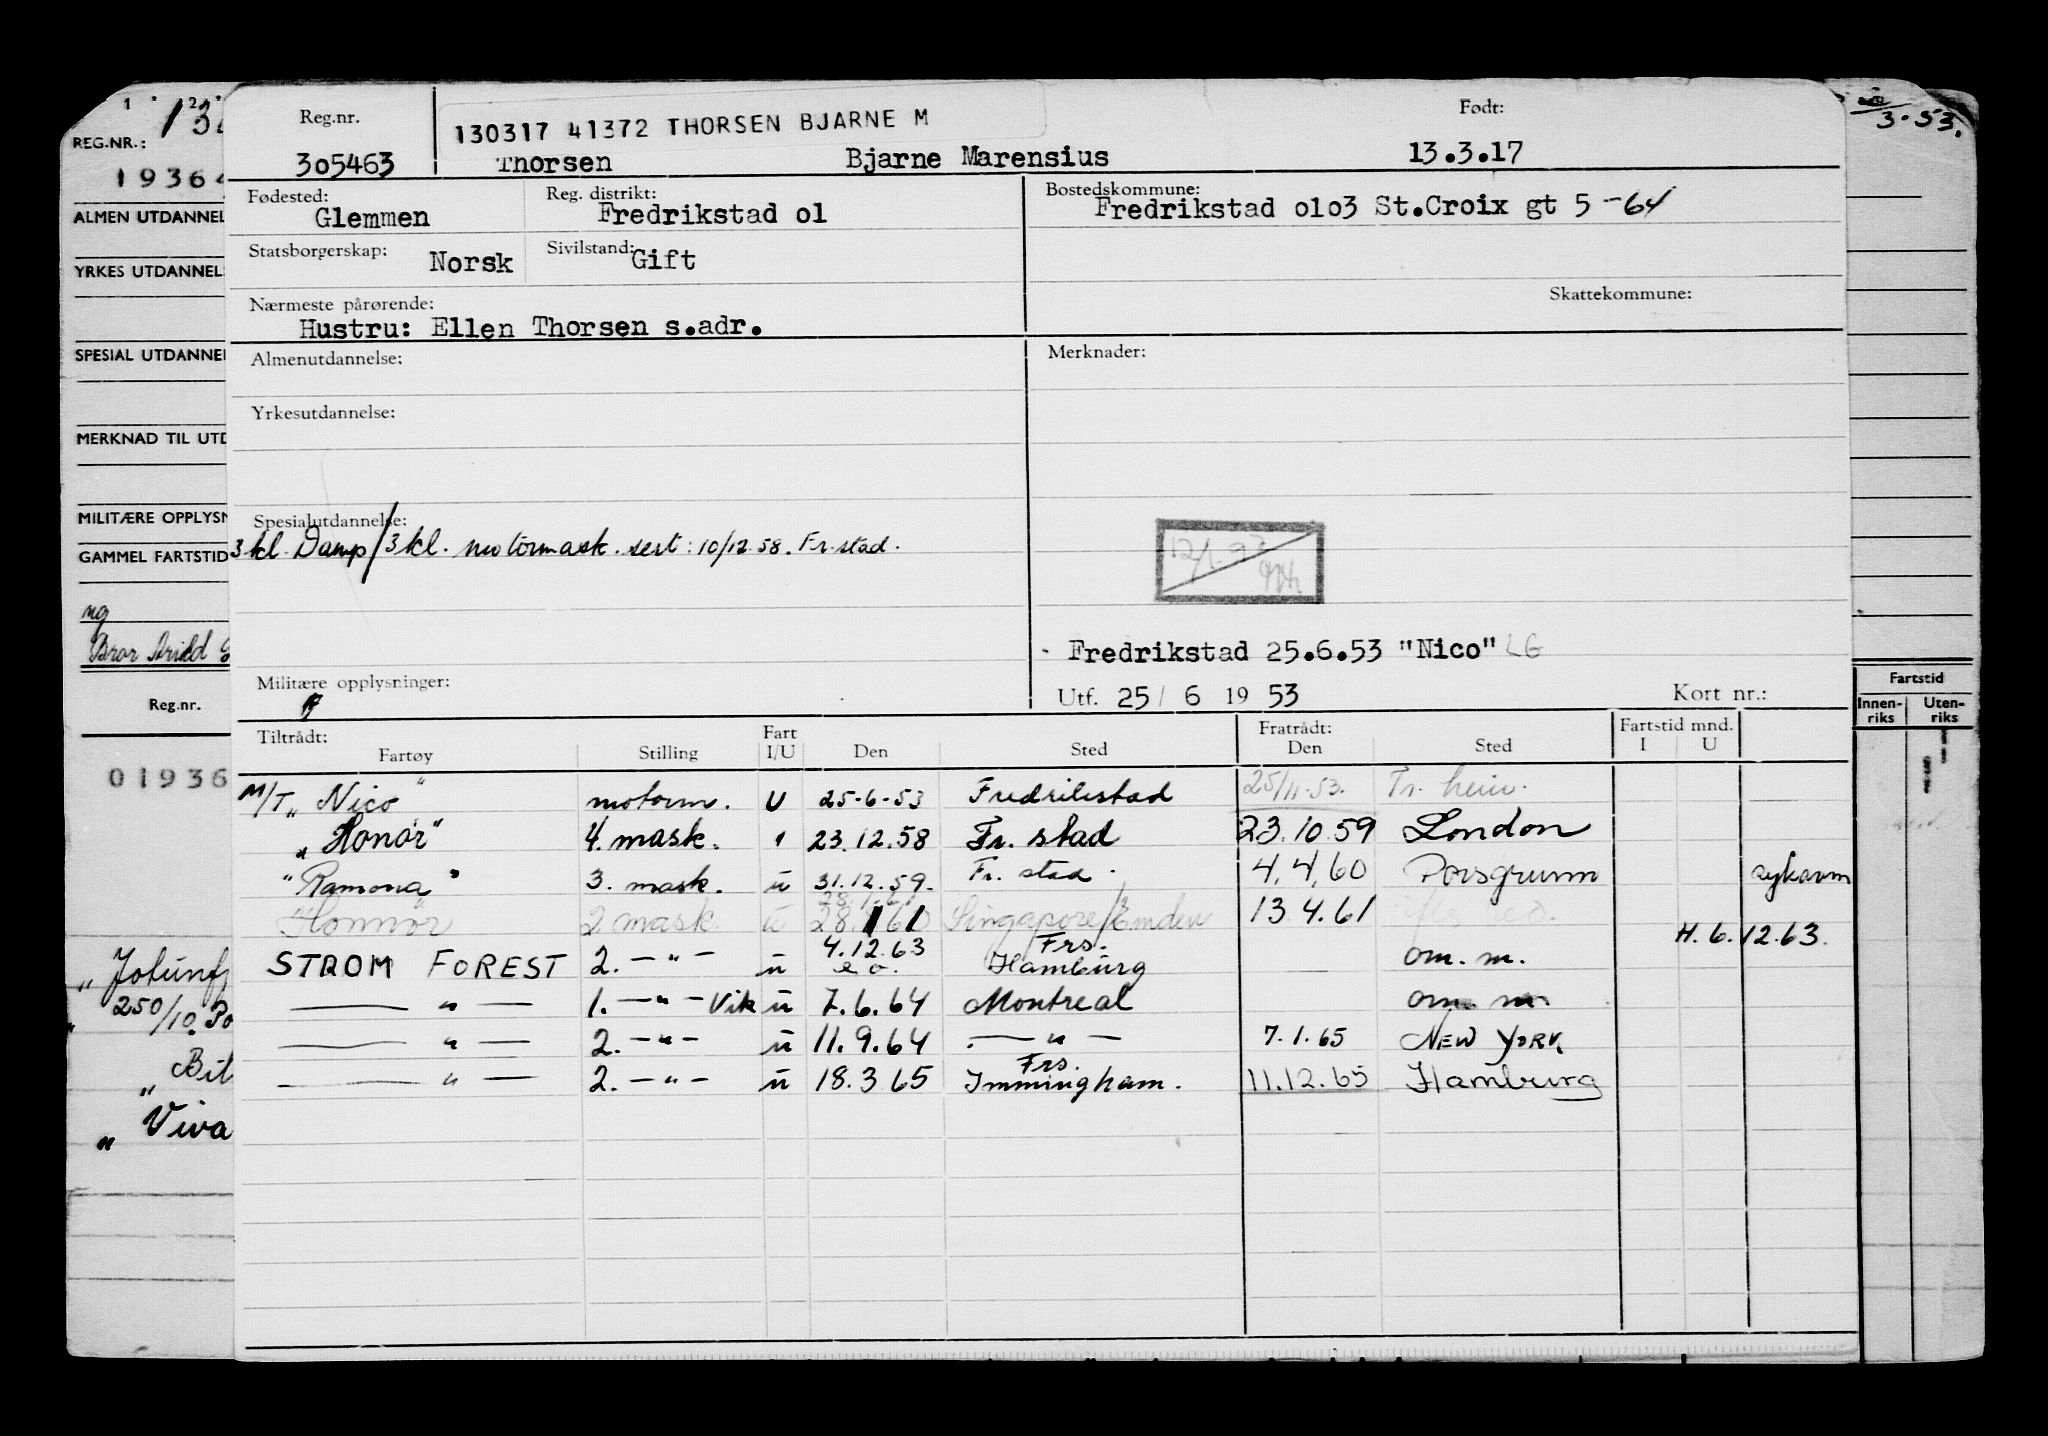 Reg.nr. 130317 41372 THORSEN BJARNE M Født:
305463 Thorsen Bjarne Marensius 13.3.17
Fødested: Reg. distrikt: Bostedskommune:
Glemmen Fredrikstad o1 Fredrikstad o1o3 St.Croix gt 5 -64
Statsborgerskap: Norsk Sivilstand: Gift
Nærmeste pårørende: Skattekommune:
Hustru: Ellen Thorsen s.adr.
Almenutdannelse: Merknader:
Yrkesutdannelse:
Spesialutdannelse:
3 kl. Damp/3 kl. motormask. sert: 10/12 58. Fr.stad.
Fredrikstad 25.6.53 "Nico" LG
Militære opplysninger: Utf. 25/ 6 19 53 Kort nr.:
Tiltrådt: Fart Fratrådt: Fartstid mnd.
Fartøy Stilling I/U Den Sted Den Sted I U
M/T „Nico" motorm. U 25-6-53 Fredrikstad 25/11.53. Tr.heim.
„Honór" 4. mask. " 23.12.58 Fr. stad 23.10.59 London
"Ramona" 3. mask. u 31.12.59. Fr. stad. 4.4.60 Porsgrunn
"Honnör" 2 mask. u Singapore/Emden 13.4.61
H. 6.12.63.
STROM FOREST 2. —"— u 4.12.63 Frs. Hamburg om. m.
— " — 1. —"— Vik u 7.6.64 Montreal om. m.
— " — 2. —"— u 11.9.64 — " — 7.1.65 NEW YORK
— " — 2. —"— u 18.3 65 Frs. Immingham. 11.12.65 Hamburg
1 2
REG.NR.: 13
1936
ALMEN UTDANNEL
YRKES UTDANNEL
SPESIAL UTDANNEL
MERKNAD TIL UTD
MILITÆRE OPPLYSN
GAMMEL FARTSTID
ng
Bror Arild
Reg.nr.
01936
„
250/10.
„ Bil
„ Viva
3.53.
Fartstid
Innen-riks Uten-riks